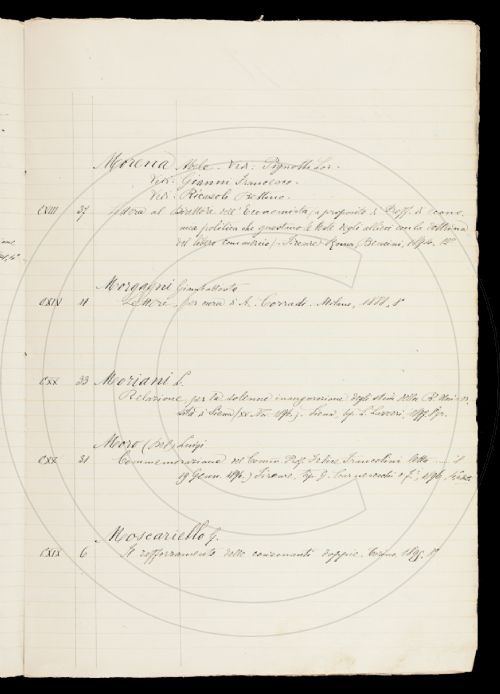 Morena Abele. Ved. Pignotti Lor.
Ved. Gianni Francesco.
Ved. Ricasoli Bettino.
CXIII 37 Lettera al Direttore dell'Economista, a proposito di Proff. di Econo-
mia politica che guastano le teste degli allievi con la dottrina
del libero commercio. Firenze-Roma, Bencini, 1874. 12°
Morgagni Giambattista
CXIV 11 Lettere, per cura di A. Corradi. Milano, 1888, 8°
CXX 33 Moriani L.
Relazione per la solenne inaugurazione degli studi della R. Univer-
sità di Siena (xv Nov. 1896). Siena, tip. L. Lazzeri, 1897.
Moro (Del) Luigi
CXX 31 Commemorazione del Comm. Prof. Felice Francolini letta il
19 Genn. 1896. Firenze, Tip. G. Carnesecchi e f.i, 1896,
Moscariello G.
CXIX 6 Il rafforzamento delle consonanti doppie. 1895. 8°